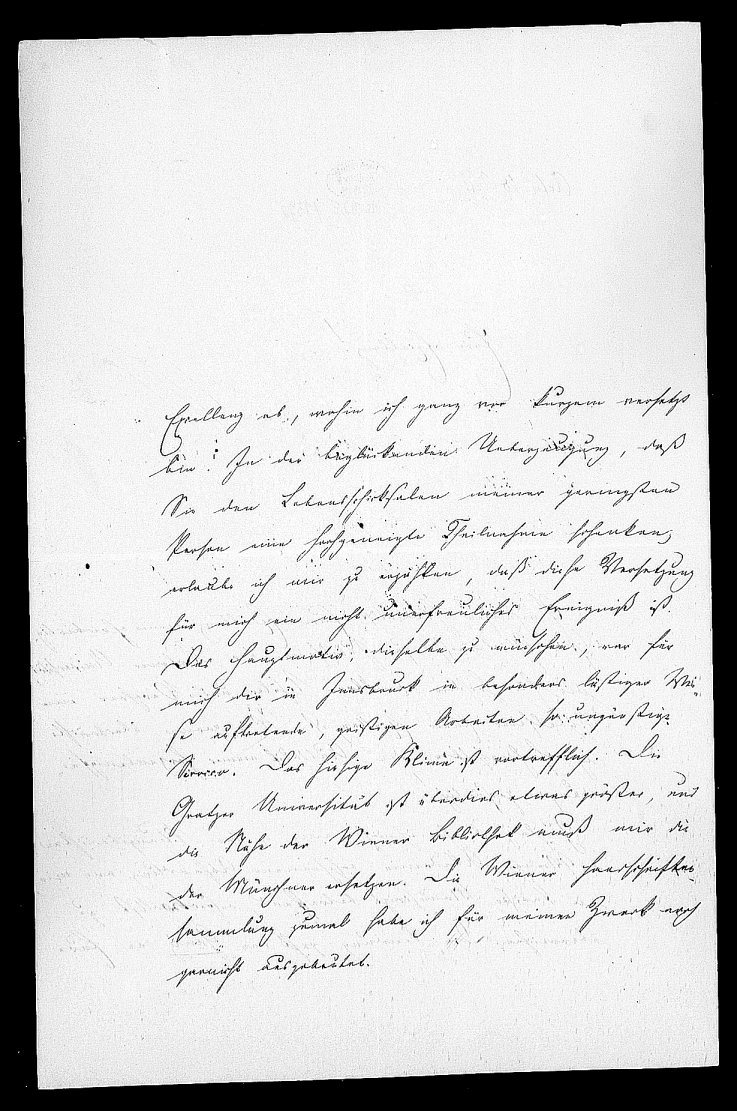 Exellenz ab, wohin ich ganz vor kurzem versetzt
bin. In der beglückenden Ueberzeugung, daß
Sie den Lebensschicksalen meiner geringsten
Person eine hochgeneigte Theilnahme schenken,
erlaube ich mir zu erzählen, daß diese Versetzung
für mich ein nicht unerfreuliches Ereigniß ist.
Das Hauptmotiv, dieselbe zu wünschen, war für
mich der in Innsbruck in besonders lästiger Wei-
se auftretende, geistigen Arbeiten so ungünstige
Sirocco. Das hiesige Klima ist vortrefflich. Die
Gratzer Universität ist überdies etwas größer, und
die Nähe der Wiener Bibliothek muß mir die
der Münchner ersetzen. Die Wiener Handschriften-
sammlung zumal habe ich für meinen Zweck noch
garnicht ausgebeutet.